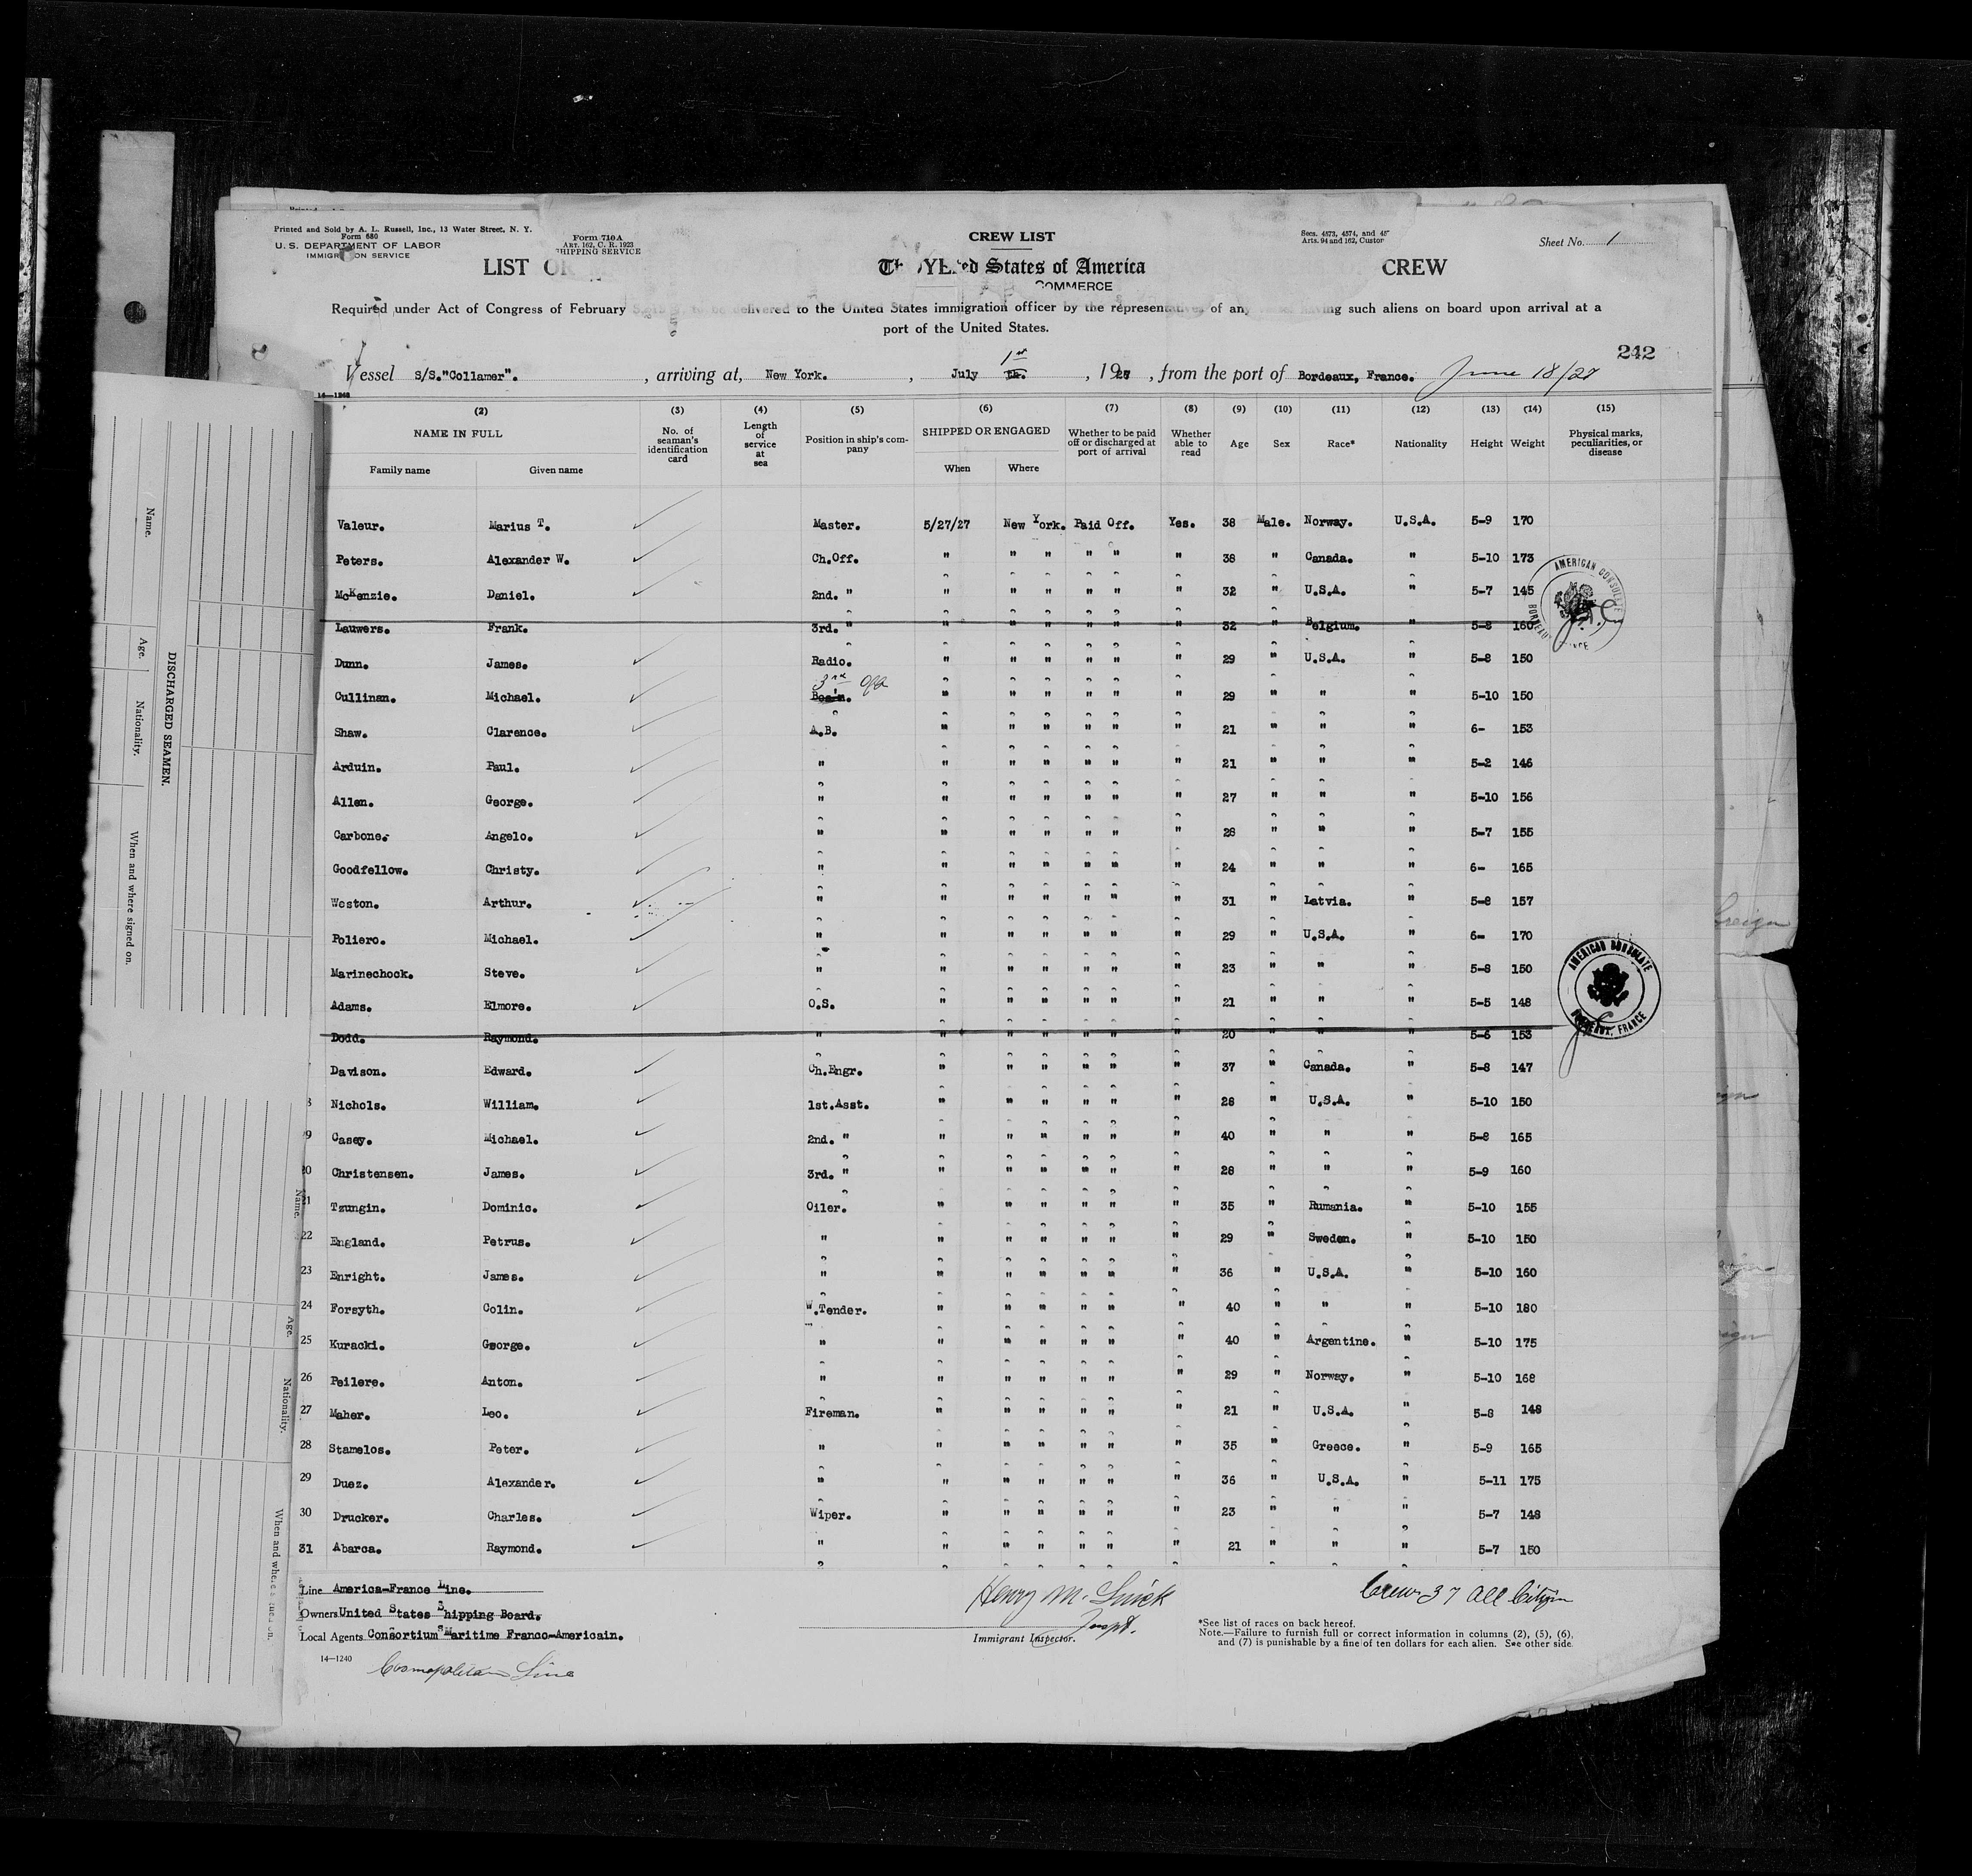 Printed and Sold by A. L. Russell, Inc., 13 Water Street, N. Y.
Form 680
U. S. DEPARTMENT OF LABOR
IMMIGRATION SERVICE
Form 710 A
ART. 162, C. R. 1923
SHIPPING SERVICE
CREW LIST
Secs. 4573, 4574, and
Arts. 94 and 162, Custor
Sheet No. 1
LIST States of America CREW
COMMERCE
Required under Act of Congress of February to be delivered to the United States immigration officer by the representative of any having such aliens on board upon arrival at a
port of the United States.
242
Vessel S/S."Collamer". , arriving at, New York. , July 1st th. , 1927 , from the port of Bordeaux, France. June 18/27
14—1240
(2) (3) (4) (5) (6) (7) (8) (9) (10) (11) (12) (13) (14) (15)
NAME IN FULL No. of seaman's identification card Length of service at sea Position in ship's company SHIPPED OR ENGAGED Whether to be paid off or discharged at port of arrival Whether able to read Age Sex Race* Nationality Height Weight Physical marks, peculiarities, or disease
Family name Given name When Where
Valeur. Marius T. Master. 5/27/27 New York. Paid Off. Yes. 38 Male. Norway. U.S.A. 5-9 170
Peters. Alexander W. Ch.Off. " " " " " " 38 " Canada. " 5-10 173
McKenzie. Daniel. 2nd. " " " " " " " 32 " U.S.A. " 5-7 145
Lauwers. Frank. 3rd. " " " " " " " 32 " Belgium. " 5-8 160
Dunn. James. Radio. " " " " " " 29 " U.S.A. " 5-8 150
3rd Off
Cullinan. Michael. Bos'n. " " " " " " 29 " " " 5-10 150
Shaw. Clarence. A.B. " " " " " " 21 " " " 6- 153
Arduin. Paul. " " " " " " " 21 " " " 5-2 146
Allen. George. " " " " " " " 27 " " " 5-10 156
Carbone. Angelo. " " " " " " " 28 " " " 5-7 155
Goodfellow. Christy. " " " " " " " 24 " " " 6- 165
Weston. Arthur. " " " " " " " 31 " Latvia. " 5-8 157
Poliero. Michael. " " " " " " " 29 " U.S.A. " 6- 170
Marinechock. Steve. " " " " " " " 23 " " " 5-8 150
Adams. Elmore. O.S. " " " " " " 21 " " " 5-5 148
Dodd. Raymond. " " " " " " " 20 " " " 5-6 153
Davison. Edward. Ch.Engr. " " " " " " 37 " Canada. " 5-8 147
Nichols. William. 1st.Asst. " " " " " " 28 " U.S.A. " 5-10 150
9 Casey. Michael. 2nd. " " " " " " " 40 " " " 5-8 165
20 Christensen. James. 3rd. " " " " " " " 28 " " " 5-9 160
21 Tzungin. Dominic. Oiler. " " " " " " 35 " Rumania. " 5-10 155
22 England. Petrus. " " " " " " " 29 " Sweden. " 5-10 150
23 Enright. James. " " " " " " " 36 " U.S.A. " 5-10 160
24 Forsyth. Colin. W.Tender. " " " " " " 40 " " " 5-10 180
25 Kuracki. George. " " " " " " " 40 " Argentine. " 5-10 175
26 Peilere. Anton. " " " " " " " 29 " Norway. " 5-10 168
27 Maher. Leo. Fireman. " " " " " " 21 " U.S.A. " 5-8 148
28 Stamelos. Peter. " " " " " " " 35 " Greece. " 5-9 165
29 Duez. Alexander. " " " " " " " 36 " U.S.A. " 5-11 175
30 Drucker. Charles. Wiper. " " " " " " 23 " " " 5-7 148
31 Abarca. Raymond. " " " " " " " 21 " " " 5-7 150
AMERICAN CONSULATE
BORDEAUX, FRANCE
AMERICAN CONSULATE
BORDEAUX, FRANCE
Line America-France Line.
Owners United States Shipping Board.
Local Agents Consortium Maritime Franco-Americain.
14—1240
Cosmopolitan Line
Inspt.
Immigrant Inspector.
Crew 37 all Citizen
*See list of races on back hereof.
Note.—Failure to furnish full or correct information in columns (2), (5), (6),
and (7) is punishable by a fine of ten dollars for each alien. See other side
DISCHARGED SEAMEN.
Name. Age. Nationality. When and where signed on.
Name. Age. Nationality. When and where signed on.